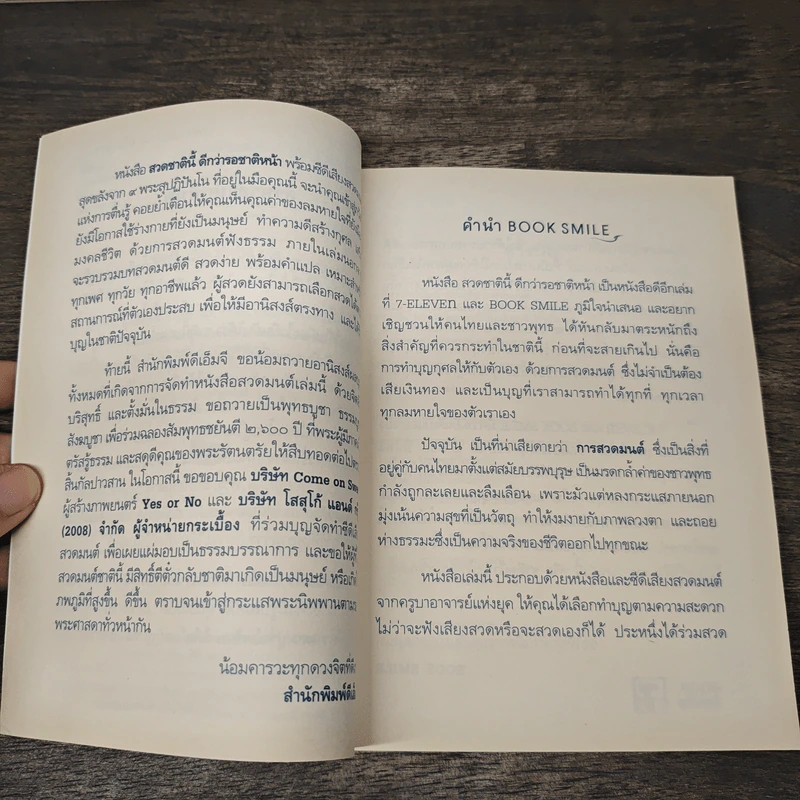 หนังสือ สวดชาตินี้ ดีกว่ารอชาติหน้า พร้อมซีดีเสียงสวด
สุดขลังจาก ๙ พระสุปฏิปันโน ที่อยู่ในมือคุณนี้ จะนำคุณเข้าสู่
แห่งการตื่นรู้ คอยย้ำเตือนให้คุณเห็นคุณค่าของลมหายใจที่ยัง
ยังมีโอกาสใช้ร่างกายที่ยังเป็นมนุษย์ ทำความดีสร้างกุศล
มงคลชีวิต ด้วยการสวดมนต์ฟังธรรม ภายในเล่มนอก
จะรวบรวมบทสวดมนต์ดี สวดง่าย พร้อมคำแปล เหมาะสำ
ทุกเพศ ทุกวัย ทุกอาชีพแล้ว ผู้สวดยังสามารถเลือกสวดได้
สถานการณ์ที่ตัวเองประสบ เพื่อให้มีอานิสงส์ตรงทาง และได้
บุญในชาติปัจจุบัน
ท้ายนี้ สำนักพิมพ์ดีเอ็มจี ขอน้อมถวายอานิสงส์
ทั้งหมดที่เกิดจากการจัดทำหนังสือสวดมนต์เล่มนี้ ด้วย
บริสุทธิ์ และตั้งมั่นในธรรม ขอถวายเป็นพุทธบูชา ธรรม
สังฆบูชา เพื่อร่วมฉลองสัมพุทธชยันตี ๒,๖๐๐ ปี ที่พระผู้มีภาค
ตรัสรู้ธรรม และสดุดีคุณของพระรัตนตรัยให้สืบทอดต่อไป
สิ้นกัลปาวสาน ในโอกาสนี้ ขอขอบคุณ บริษัท Come on Swe
ผู้สร้างภาพยนตร์ Yes or No และ บริษัท โสสุโก้ แอนด์
(2008) จำกัด ผู้จำหน่ายกระเบื้อง ที่ร่วมบุญจัดทำซีดี
สวดมนต์ เพื่อเผยแผ่มอบเป็นธรรมบรรณาการ และขอให้ผู้
สวดมนต์ชาตินี้ มีสิทธิ์ตีตั๋วกลับชาติมาเกิดเป็นมนุษย์ หรือ
ภพภูมิที่สูงขึ้น ดีขึ้น ตราบจนเข้าสู่กระแสพระนิพพานตาม
พระศาสดาทั่วหน้ากัน
น้อมคารวะทุกดวงจิตที่
สำนักพิมพ์ดีเอ็
คำนำ BOOK SMILE
หนังสือ สวดชาตินี้ ดีกว่ารอชาติหน้า เป็นหนังสือดีอีกเล่ม
ที่ 7-ELEVEn และ BOOK SMILE ภูมิใจนำเสนอ และอยาก
เชิญชวนให้คนไทยและชาวพุทธ ได้หันกลับมาตระหนักถึง
สิ่งสำคัญที่ควรกระทำในชาตินี้ ก่อนที่จะสายเกินไป นั่นคือ
การทำบุญกุศลให้กับตัวเอง ด้วยการสวดมนต์ ซึ่งไม่จำเป็นต้อง
เสียเงินทอง และเป็นบุญที่เราสามารถทำได้ทุกที่ ทุกเวลา
ทุกลมหายใจของตัวเราเอง
ปัจจุบัน เป็นที่น่าเสียดายว่า การสวดมนต์ ซึ่งเป็นสิ่งที่
อยู่คู่กับคนไทยมาตั้งแต่สมัยบรรพบุรุษ เป็นมรดกล้ำค่าของชาวพุทธ
กำลังถูกละเลยและลืมเลือน เพราะมัวแต่หลงกระแสภายนอก
มุ่งเน้นความสุขที่เป็นวัตถุ ทำให้งมงายกับภาพลวงตา และถอย
ห่างธรรมะซึ่งเป็นความจริงของชีวิตออกไปทุกขณะ
หนังสือเล่มนี้ ประกอบด้วยหนังสือและซีดีเสียงสวดมนต์
จากครูบาอาจารย์แห่งยุค ให้คุณได้เลือกทำบุญตามความสะดวก
ไม่ว่าจะฟังเสียงสวดหรือจะสวดเองก็ได้ ประหนึ่งได้ร่วมสวด